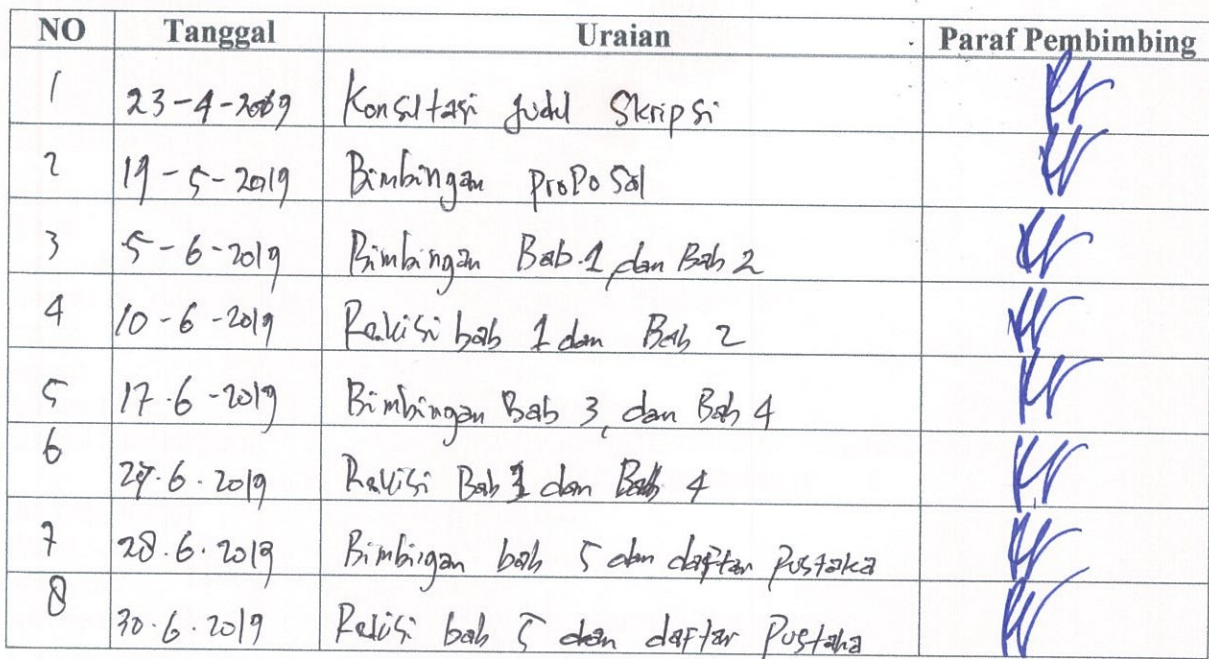 NO Tanggal Uraian Paraf Pembimbing
1 23-4-2019 Konsultasi judul Skripsi
2 19-5-2019 Bimbingan ProPosal
3 5-6-2019 Bimbingan Bab.1, dan Bab 2
4 10-6-2019 Revisi bab 1 dan Bab 2
5 17-6-2019 Bimbingan Bab 3, dan Bab 4
6 6.2019 Revisi Bab 3 dan Bab 4
7 28.6.2019 Bimbingan bab 5 dan daftar Pustaka
8 30.6.2019 Revisi bab 5 dan daftar Pustaka